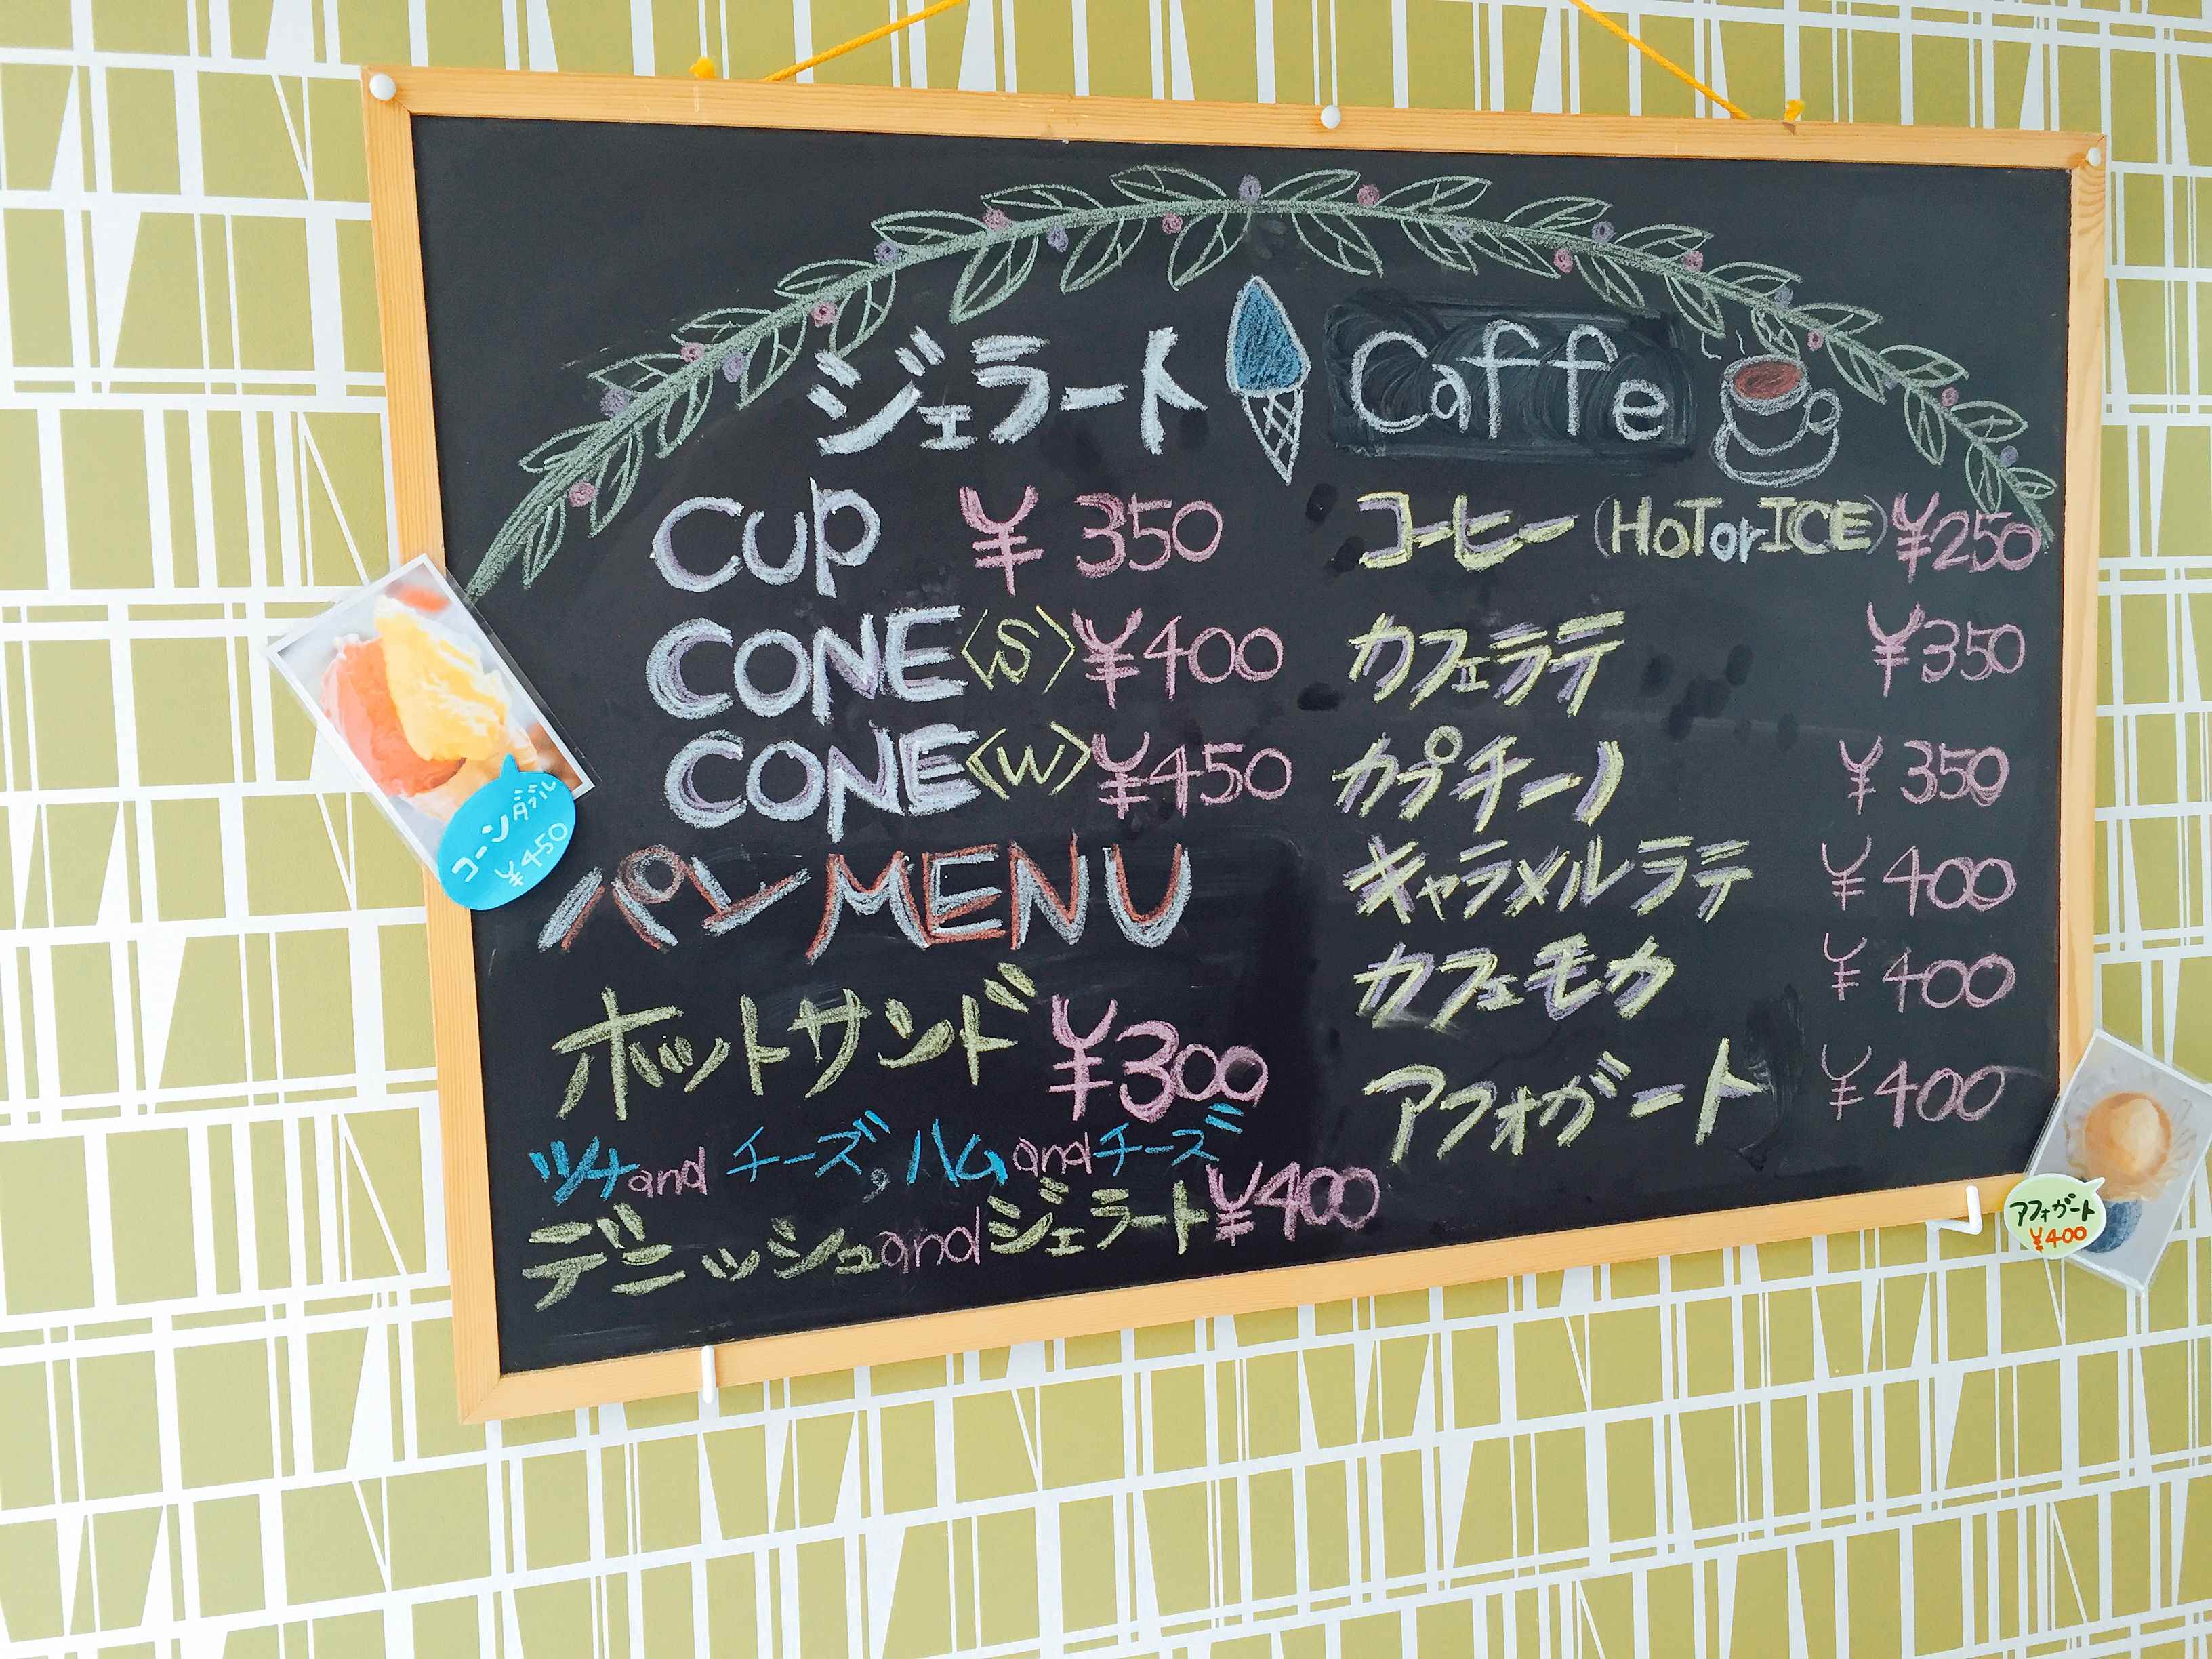 ジェラート
CUP ¥350
CONE〈S〉¥400
CONE〈W〉¥450
パンMENU
ホットサンド ¥300
ツナandチーズ,ハムandチーズ
デニッシュandジェラート¥400
Caffe
コーヒー(HOTorICE)¥250
カフェラテ ¥350
カプチーノ ¥350
キャラメルラテ ¥400
カフェモカ ¥400
アフォガート ¥400
コーンダブル
¥450
アフォガート
¥400